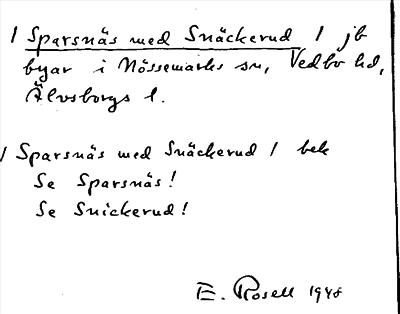 / Sparsnäs med Snäckerud / jb
byar i Nössemarks sn, Vedbo hd,
Älvsborgs l.
/ Sparsnäs med Snäckerud / bek
Se Sparsnäs!
Se Snickerud!
E. Rosell 1948